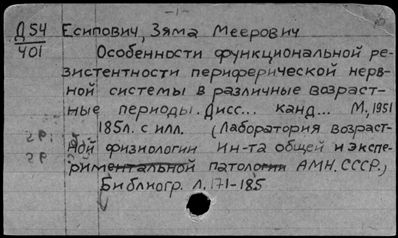 -1-
Д54 Есипович, Зяма Меерович
401 Особенности функциональной ре-
зистентности периферической нерв-
ной системы в различные возраст-
ные периоды. Дисс... канд... М., 1951
185л. с илл. (Лаборатория возраст-
ной физиологии Ин-та общей и экспе-
риментальной патологии АМН.СССР.,
Библиогр. л. 171-185